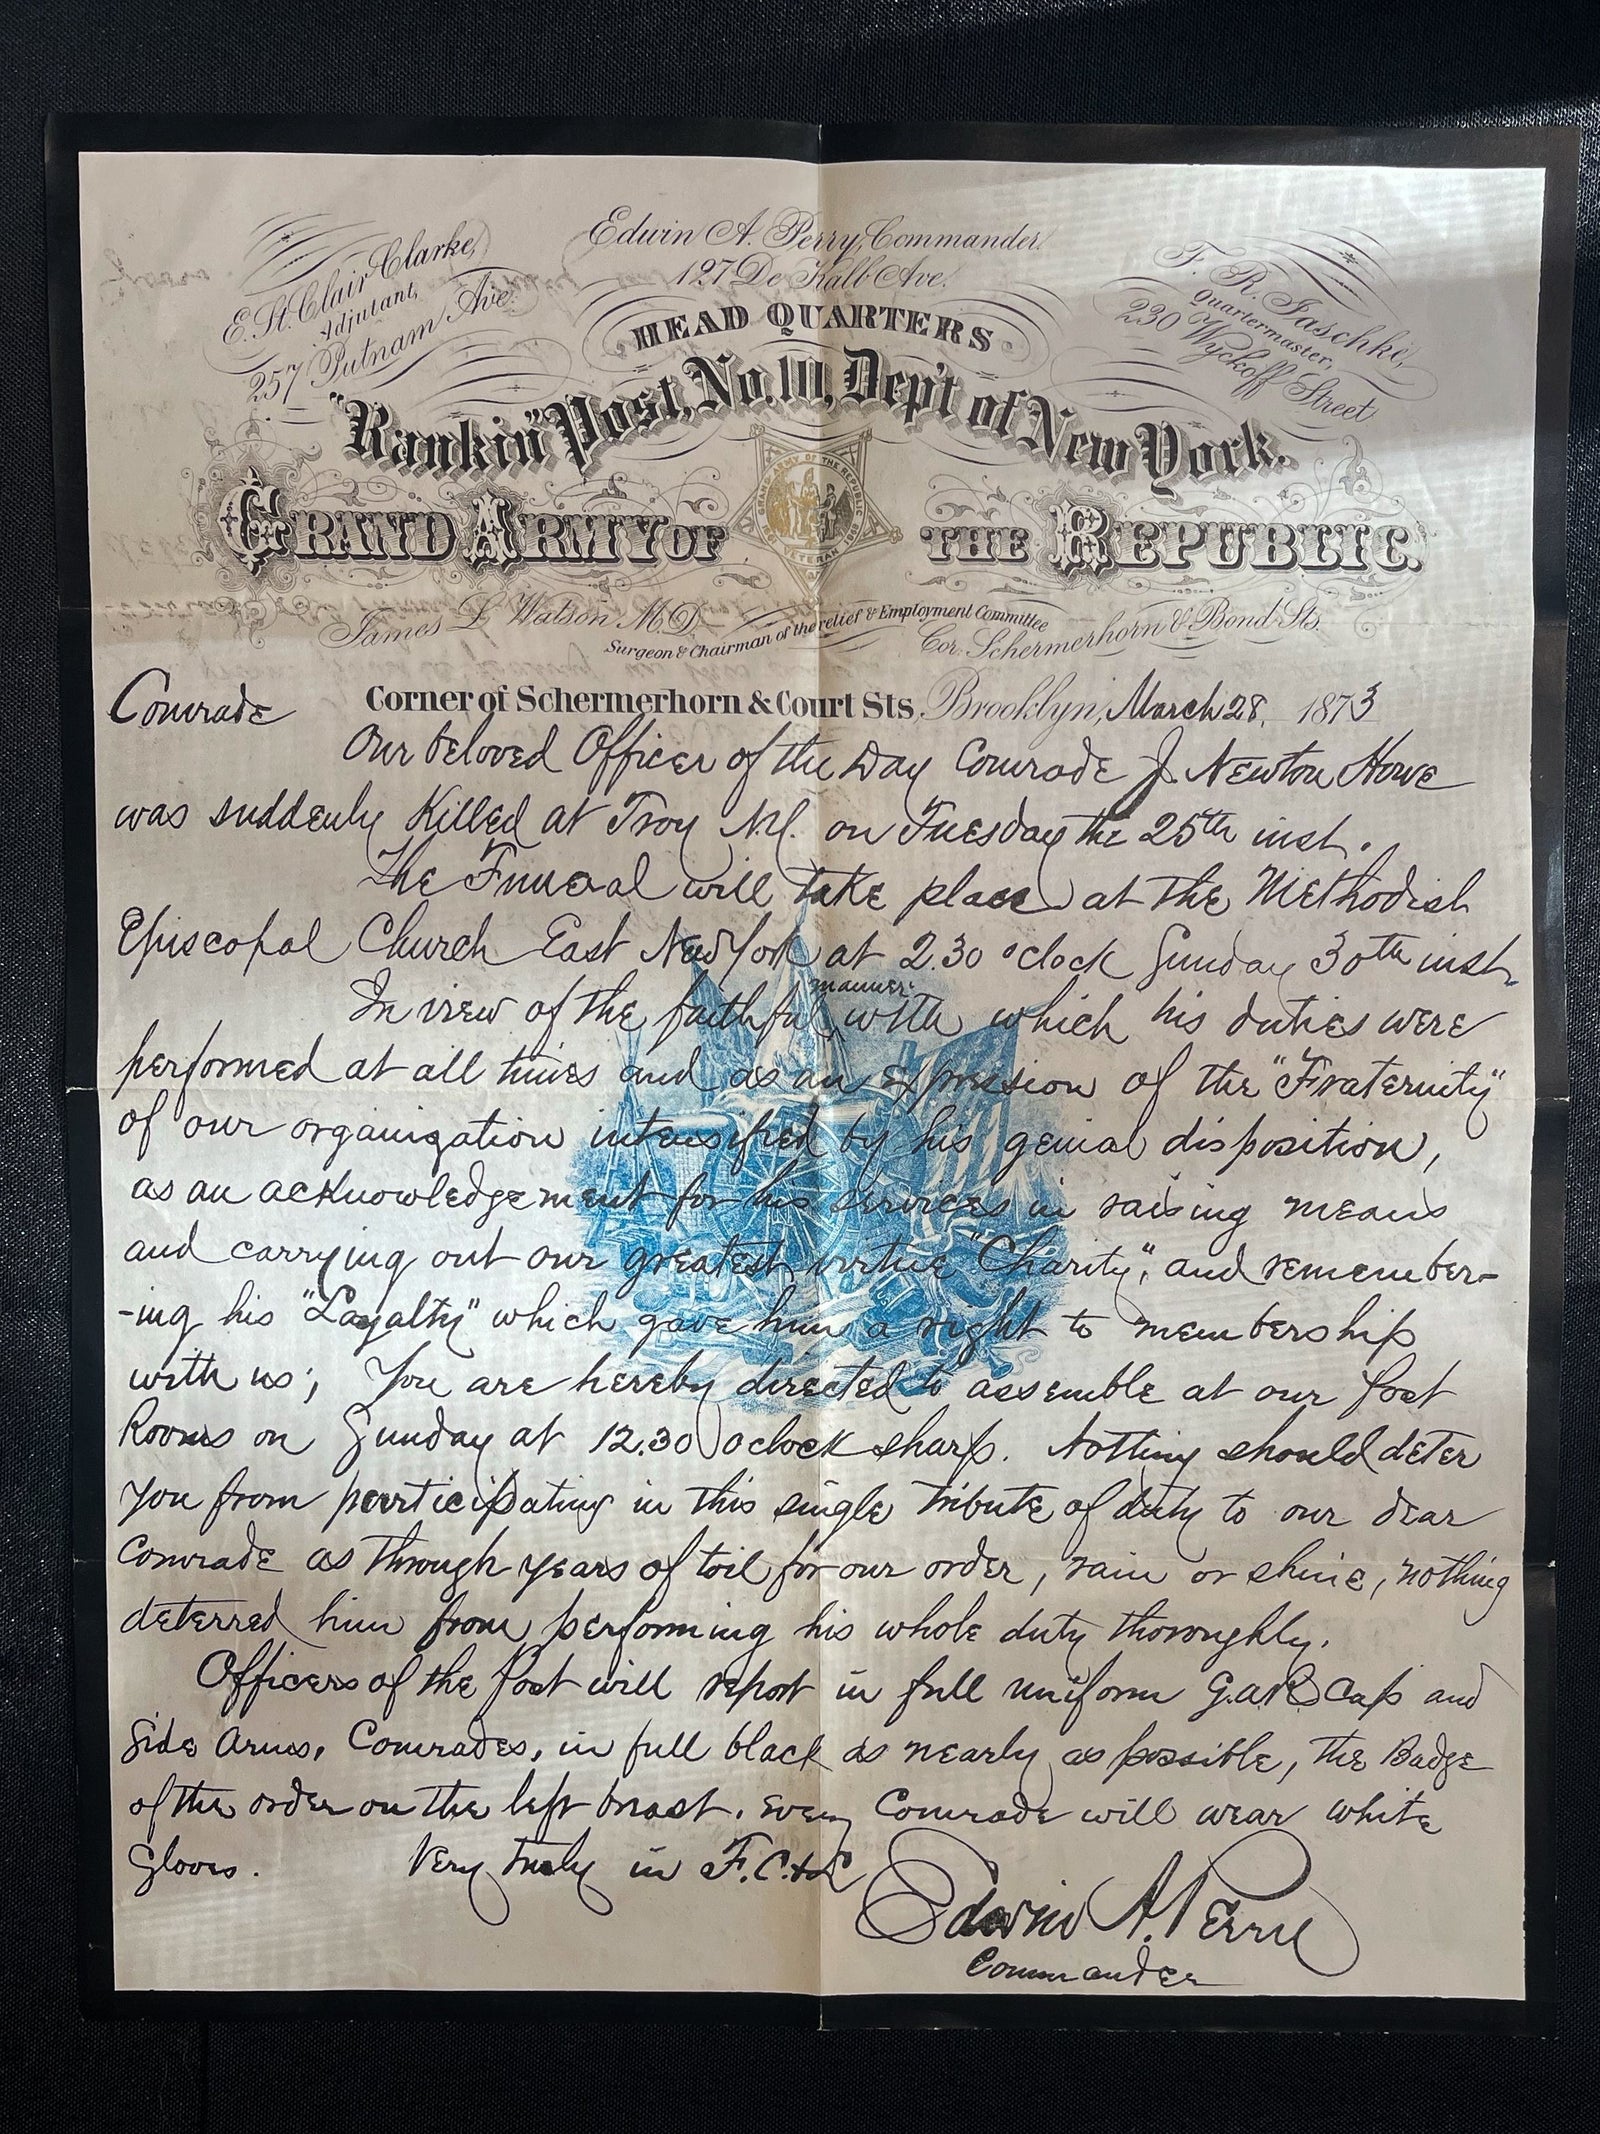 Edwin A. Perry, Commander.
127 De Kalb Ave.
E. St. Clair Clarke,
Adjutant,
257 Putnam Ave.
F. R. Jaschke,
Quartermaster,
230 Wyckoff Street
HEAD QUARTERS
"Rankin" Post, No. 10, Dep't of New York.
GRAND ARMY OF THE REPUBLIC.
GRAND ARMY OF THE REPUBLIC
VETERAN
James L. Watson M.D.
Surgeon & Chairman of the relief & Employment Committee
Cor. Schermerhorn & Bond Sts.
Corner of Schermerhorn & Court Sts. Brooklyn, March 28, 1873
Comrade
Our beloved Officer of the Day Comrade J. Newton Howe
was suddenly Killed at Troy N.Y. on Tuesday the 25th inst.
The Funeral will take place at the Methodist
Episcopal Church East New York at 2.30 o'clock Sunday 30th inst.
In view of the faithful manner with which his duties were
performed at all times and as an expression of the "Fraternity"
of our organization intensified by his genial disposition,
as an acknowledgement for his services in raising means
and carrying out our greatest virtue "Charity", and remember-
-ing his "Loyalty" which gave him a right to membership
with us; You are hereby directed to assemble at our Post
Rooms on Sunday at 12.30 oclock sharp. Nothing should deter
you from participating in this single tribute of duty to our dear
Comrade as through years of toil for our order, rain or shine, nothing
deterred him from performing his whole duty thoroughly.
Officers of the Post will report in full uniform G.A.R. Cap and
Side Arms. Comrades, in full black as nearly as possible, the Badge
of the order on the left breast. Every Comrade will wear white
Gloves. Very truly in F.C.&L
Edwin A. Perry
Commander